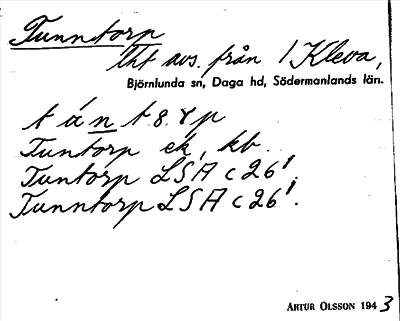 Tunntorp
lht avs. från 1 Kleva,
Björnlunda sn, Daga hd, Södermanlands län.
t á n t
Tuntorp ek, kb.
Tuntorp LSA c 26¹.
Tunntorp LSA c 26¹.
ARTUR OLSSON 1943